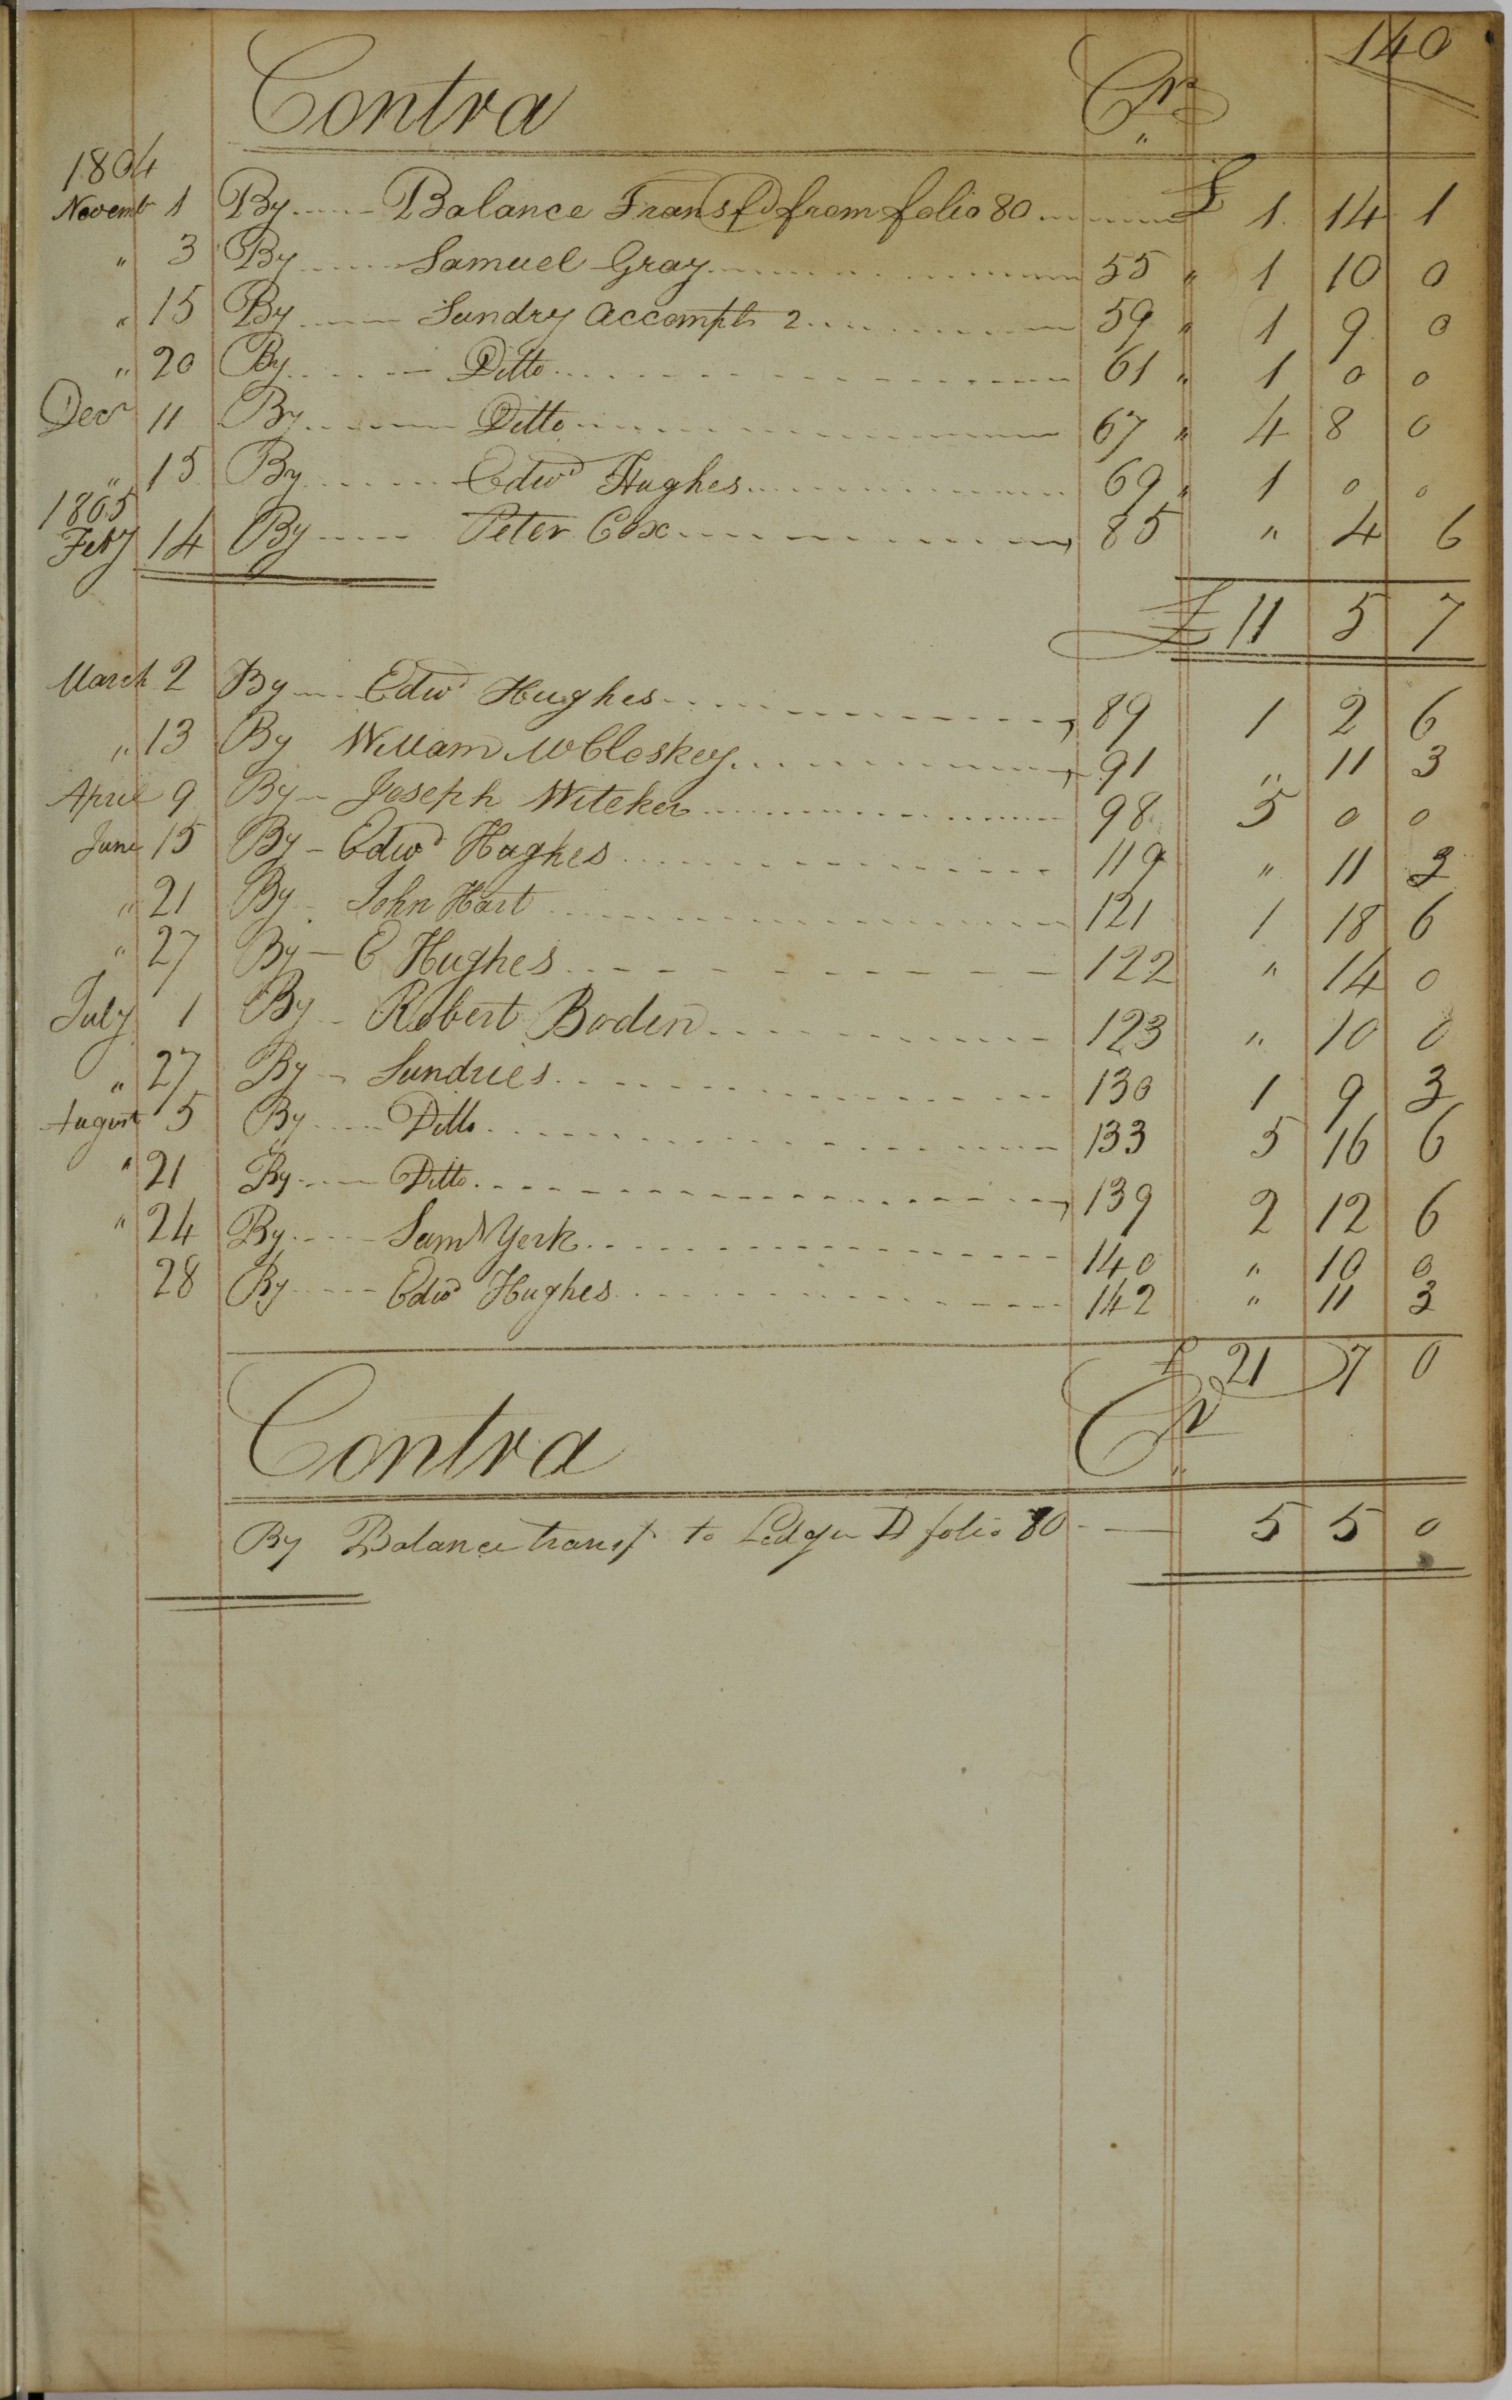 140
Contra Cr
1804
Novemb 1 By Balance Transfd from folio 80 £ 1 14 1
" 3 By Samuel Gray 55 " 1 10 0
" 15 By Sundry Accompts 2 59 " 1 9 0
" 20 By Ditto 61 " 1 0 0
Decr 11 By Ditto 67 " 4 8 0
" 15 By Edwd Hughes 69 " 1 0 0
1805
Feby 14 By Peter Cox 85 " 4 6
£ 11 5 7
March 2 By Edwd Hughes 89 1 2 6
" 13 By William McCloskey 91 " 11 3
April 9 By Joseph Witeker 98 5 0 0
June 15 By Edwd Hughes 119 " 11 3
" 21 By John Hart 121 1 18 6
" 27 By E Hughes 122 " 14 0
July 1 By Robert Boden 123 " 10 0
" 27 By Sundries 130 1 9 3
August 5 By Ditto 133 5 16 6
" 21 By Ditto 139 2 12 6
" 24 By Saml York 140 " 10 0
28 By Edwd Hughes 142 " 11 3
£ 21 7 0
Contra Cr
By Balance transf to Ledger D folio 80 5 5 0